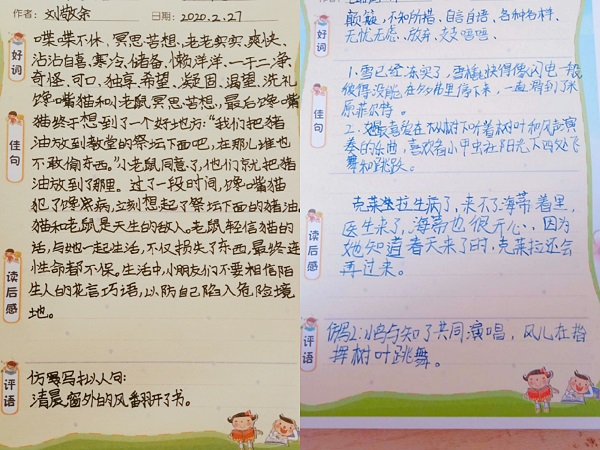 作者：刘敬余 日期：2020.2.27
好词
喋喋不休、冥思苦想、老老实实、爽快、
沾沾自喜、寒冷、储备、懒洋洋、一干二净、
奇怪、可口、独享、希望、凝固、渴望、洗礼
佳句
馋嘴猫和小老鼠冥思苦想，最后馋嘴
猫终于想到了一个好地方："我们把猪
油放到教堂的祭坛下面吧，在那儿谁也
不敢偷东西。"小老鼠同意了，他们就把猪
油放到了那里。过了一段时间，馋嘴猫
犯了馋痨病，立刻想起了祭坛下面的猪油
读后感
猫和老鼠是天生的敌人。老鼠轻信猫的
话，与她一起生活，不仅损失了东西，最终连
性命都不保。生活中，小朋友们不要相信陌
生人的花言巧语，以防自己陷入危险境
地。
评语
仿写拟人句：
清晨窗外的风翻开了书。
好词
颠簸、不知所措、自言自语、各种各样、
无忧无虑、放弃、
佳句
1.雪已经冻实了，雪橇快得像闪电一般
使得没能在夕夕弗里停下来，一直滑到了冰
原菲尔特。
2.她最喜欢在大树下叶着树叶和风声演
奏的乐曲，喜欢看小甲虫在阳光下四处飞
舞和跳跃。
读后感
克莱拉生病了，来不了海蒂着里，
医生来了，海蒂也很开心，因为
她知道春天来了时，克莱拉还会
再过来。
评语
仿写2：小鸟与知了共同演唱，风儿在指
挥树叶跳舞。